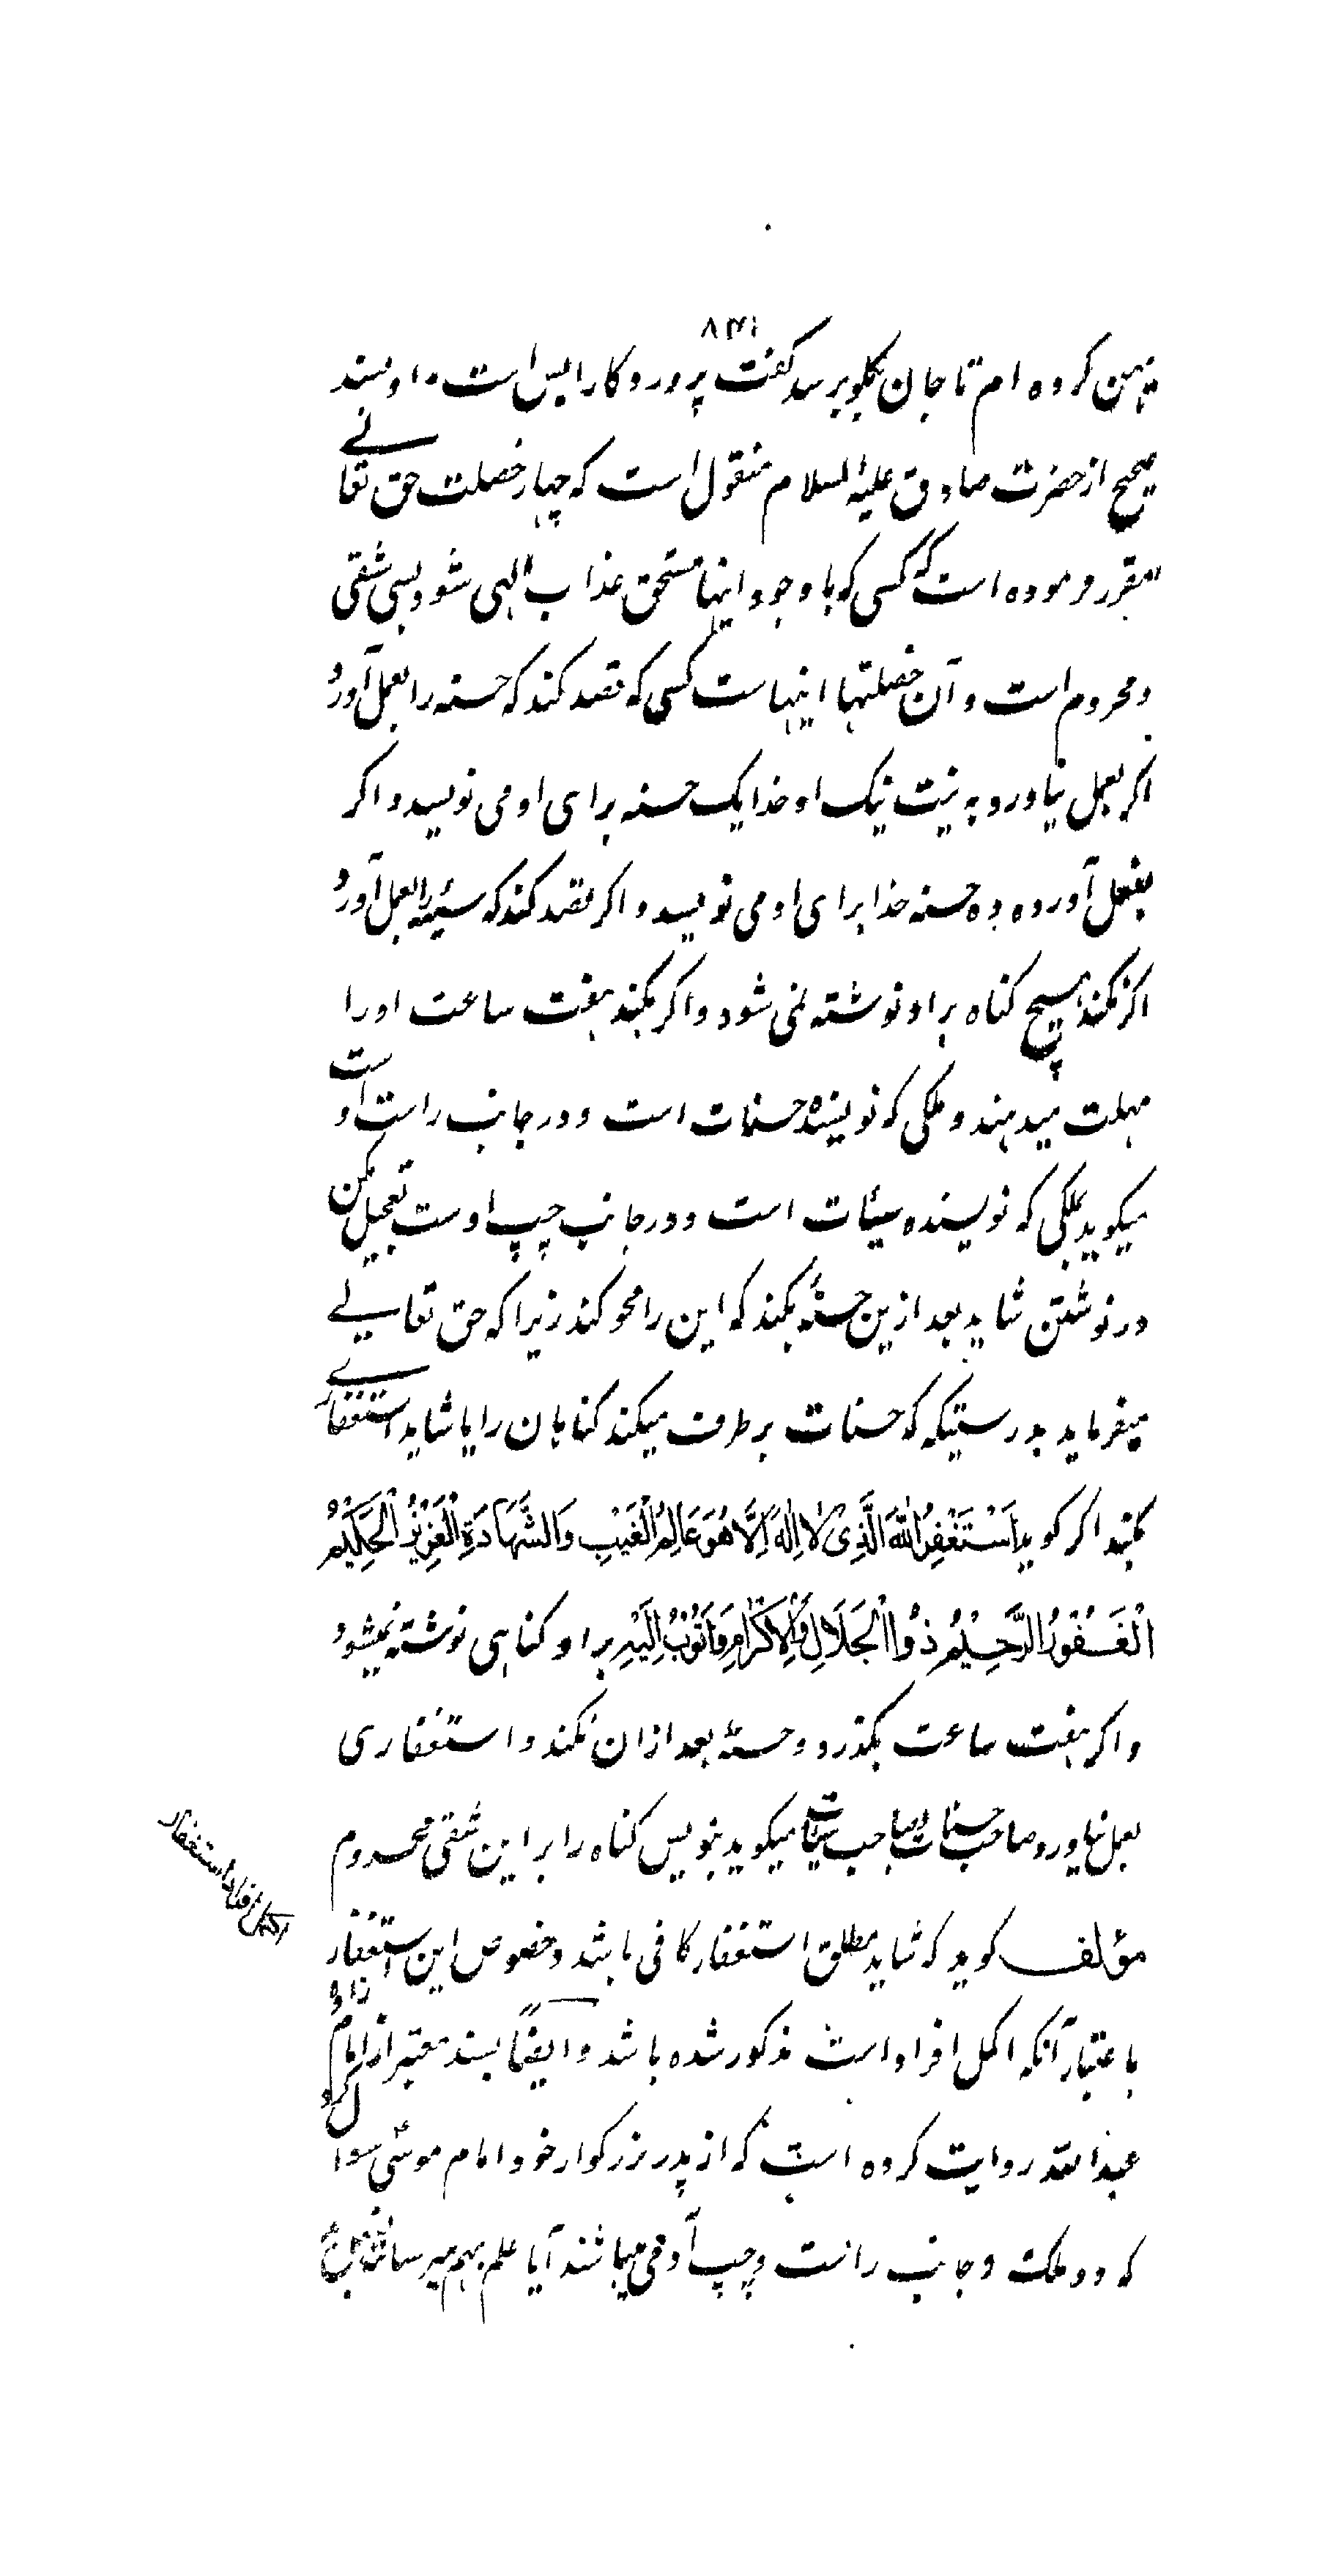 ۸۳۱
پهن کرده ام تا جان بگلو برسد گفت پروردگارا بس است و بسند
صحیح از حضرت صادق علیه السلام منقول است که چهار خصلت حق تعالے
مقرر فرموده است که کسی که با وجود اینها مستحق عذاب الهی شود بسی شقی
و محروم است و آن خصلتها اینهاست کسی که قصد کند که حسنه را بعمل آورد و
اکر بعمل نیاورد به نیت نیک او خدا یک حسنه برای او می نویسد و اکر
بفعل آورد ده حسنه خدا برای او می نویسد و اکر قصد کند که سیئه را بعمل آورد و
اکر نکند هیچ کناه بر او نوشته نمی شود و اکر بکند هفت ساعت او را
مهلت میدهند و ملکی که نویسنده حسنات است و در جانب راست اوست
میکوید بملکی که نویسنده سیئات است و در جانب چپ اوست تعجیل مکن
در نوشتن شاید بعد ازین حسنهٔ بکند که این را محو کند زیرا که حق تعالیے
میفرماید بدرستیکه که حسنات بر طرف میکند کناهان را یا شاید استغفارے
بکند اکر کوید اَسْتَغْفِرُ اللّٰهَ الَّذِیْ لَا اِلٰهَ اِلَّا هُوَ عَالِمُ الْغَیْبِ وَالشَّهَادَةِ الْعَزِیْزُ الْحَکِیْمُ
الْغَفُوْرُ الرَّحِیْمُ ذُوا الْجَلَالِ وَالْاِکْرَامِ وَاَتُوْبُ اِلَیْهِ بر او کناهی نوشته نمیشود و
و اکر هفت ساعت بکذرد و حسنهٔ بعد ازان نکند و استغفاری
بعمل نیاورد صاحب حسنات بصاحب سیئات میکوید بنویس کناه را بر این شقی محروم
مؤلف کوید که شاید مطلق استغفار کافی باشد و خصوص این استغفار
باعتبار آنکه اکمل افراد است مذکور شده باشد و ایضًا بسند معتبر از امام زاده
عبدالله روایت کرده است که از پدر بزرکوار خود امام موسی سوال کرد
که دو ملک در جانب راست و چپ آدمی میباشند آیا علم بهم میرسانند
اکمل افراد استغفار